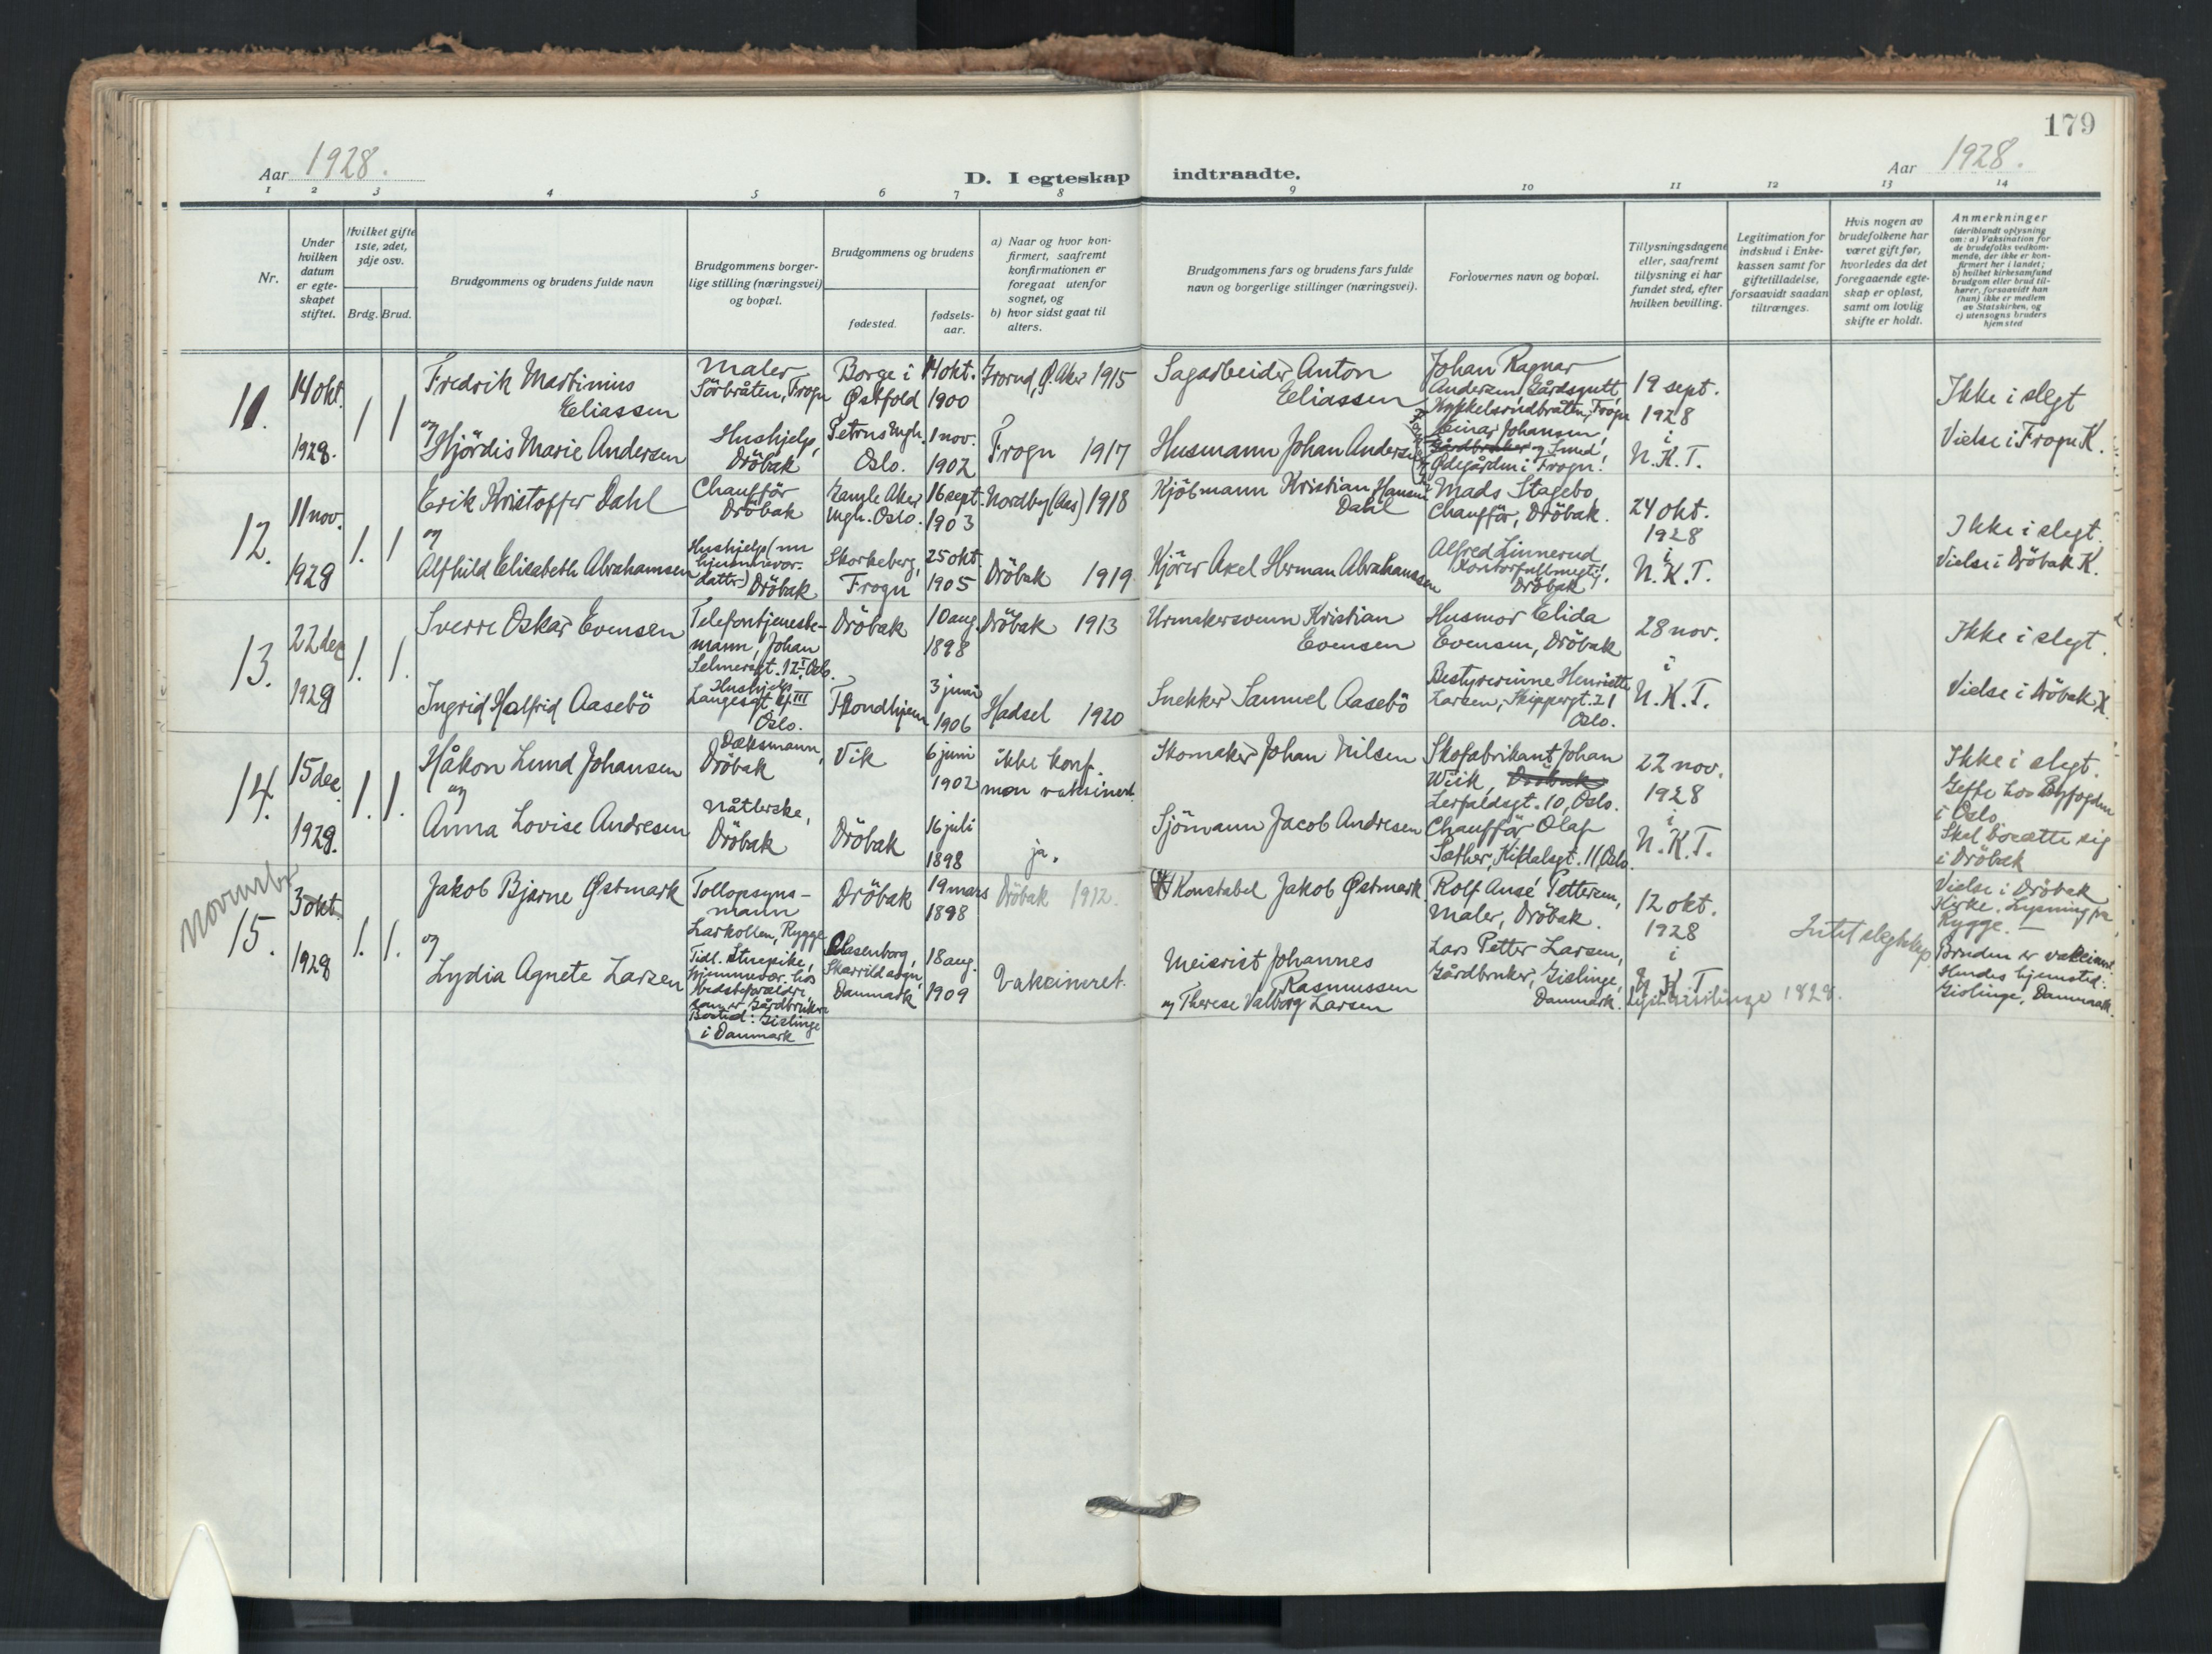 179
Aar 1928.
D. I egteskap indtraadte.
Aar 1928.
1 2 3 4 5 6 7 8 9 10 11 12 13 14
Nr.
Under hvilken datum er egteskapet stiftet.
Hvilket gifte 1ste, 2det, 3dje osv.
Brdg. Brud.
Brudgommens og brudens fulde navn
Brudgommens borgerlige stilling (næringsvei) og bopæl.
Brudgommens og brudens
fødested.
fødselsaar.
a) Naar og hvor konfirmert, saafremt konfirmationen er foregaat utenfor sognet, og
b) hvor sidst gaat til alters.
Brudgommens fars og brudens fars fulde navn og borgerlige stillinger (næringsvei).
Forlovernes navn og bopæl.
Tillysningsdagene eller, saafremt tillysning ei har fundet sted, efter hvilken bevilling.
Legitimation for indskud i Enkekassen samt for giftetilladelse, forsaavidt saadan tiltrænges.
Hvis nogen av brudefolkene har været gift før, hvorledes da det foregaaende egteskap er opløst, samt om lovlig skifte er holdt.
Anmerkninger
(deriblandt oplysning om: a) Vaksination for de brudefolks vedkommende, der ikke er konfirmert her i landet;
b) hvilket kirkesamfund brudgom eller brud tilhører, forsaavidt han (hun) ikke er medlem av Statskirken, og
c) utensogns bruders hjemsted
11.
14 okt.
1928.
1 1
Fredrik Martinius
Eliassen
og
Hjördis Marie Andersen
Maler
Sörbråten, Frogn
Hushjelp,
Dröbak
Borge i
Østfold
Petrus mgh.
Oslo.
14 okt.
1900
1 nov.
1902
Grorud, Ø. Aker 1915
Frogn 1917
Sagarbeider Anton
Eliassen
Husmann Johan Andersen
Johan Ragnar
Andersen, Gårdsgutt,
Nykkelsrudbråten, Frogn
Einar Johansen,
Gårdbruker og Smed,
Ødegården i Frogn.
19 sept.
1928
i
N.K.T.
Ikke i slegt
Vielse i Frogn K.
12.
11 nov.
1928
1. 1
Erik Kristoffer Dahl
og
Alfhild Elisabeth Abrahamsen
Chaufför
Dröbak
Hushjelp (nu
hjemmevær.
datter) Dröbak
Gamle Aker
mgh. Oslo.
Skorkeberg,
Frogn
16 sept.
1903
25 okt.
1905
Nordby (Aas) 1918
Dröbak 1919
Kjöbmann Kristian Hansen
Dahl
Kjörer Axel Herman Abrahamsen
Mads Stagebo,
Chaufför, Dröbak.
Alfred Linnerud
Kontorfullmegtig,
Dröbak
24 okt.
1928
i
N.K.T.
Ikke i slegt.
Vielse i Dröbak K.
13.
22 dec
1928
1. 1.
Sverre Oskar Evensen
Ingrid Halfrid Aasebö
Telefontjenestemann, Johan
Selmersgt. 12 I, Oslo.
Hushjelp
Langesgt. III
Oslo.
Dröbak
Trondhjem
10 aug
1898
3 juni
1906
Dröbak 1913
Hadsel 1920
Urmakersvenn Kristian
Evensen
Snekker Samuel Aasebö
Husmor Elida
Evensen, Dröbak
Bestyrerinne Henriette
Larsen, Skippergt. 21
Oslo.
28 nov.
i
N.K.T.
Ikke i slegt.
Vielse i Dröbak K.
14.
15 dec.
1928.
1. 1.
Håkon Lund Johansen
og
Anna Lovise Andresen
Dæksmann,
Dröbak
Nåtlerske,
Dröbak
Vik
Dröbak
6 juni
1902
16 juli
1898
ikke konf.
men vaksinert.
ja.
Skomaker Johan Nilsen
Sjömann Jacob Andresen
Skofabrikant Johan
Wiik, Dröbak
Lerfaldsgt. 10, Oslo.
Chaufför Olaf
Sæther, Kiftalsgt. 11, Oslo.
22 nov.
1928
i
N.K.T.
Ikke i slegt.
Gifte hos Byfogden
i Oslo.
Skal bosætte sig
i Dröbak
November
15.
3 okt.
1928
1. 1.
Jakob Bjarne Østmark
og
Lydia Agnete Larsen
Tollopsynsmann
Larkollen, Rygge
Tidl. Stuepike,
hjemmevær. hos
Bedsteforældre,
som er Gårdbrukere
Bosted: Gislinge
i Danmark
Dröbak
Clasenborg,
Skarrild sogn,
Danmark
19 mars
1898
18 aug.
1909
Dröbak 1912.
Vaksineret.
Konstabel Jakob Østmark
Meierist Johannes
Rasmussen
og Therese Valborg Larsen
Rolf Ansé Pettersen,
Maler, Dröbak.
Lars Petter Larsen,
Gårdbruker, Gislinge,
Danmark.
12 okt.
1928
i
N.K.T
Gislinge 1928.
Intet slegtskap.
Vielse i Dröbak
Kirke. Lysning fra
Rygge.
Bruden er vaksinert.
Hendes hjemsted:
Gislinge, Danmark.